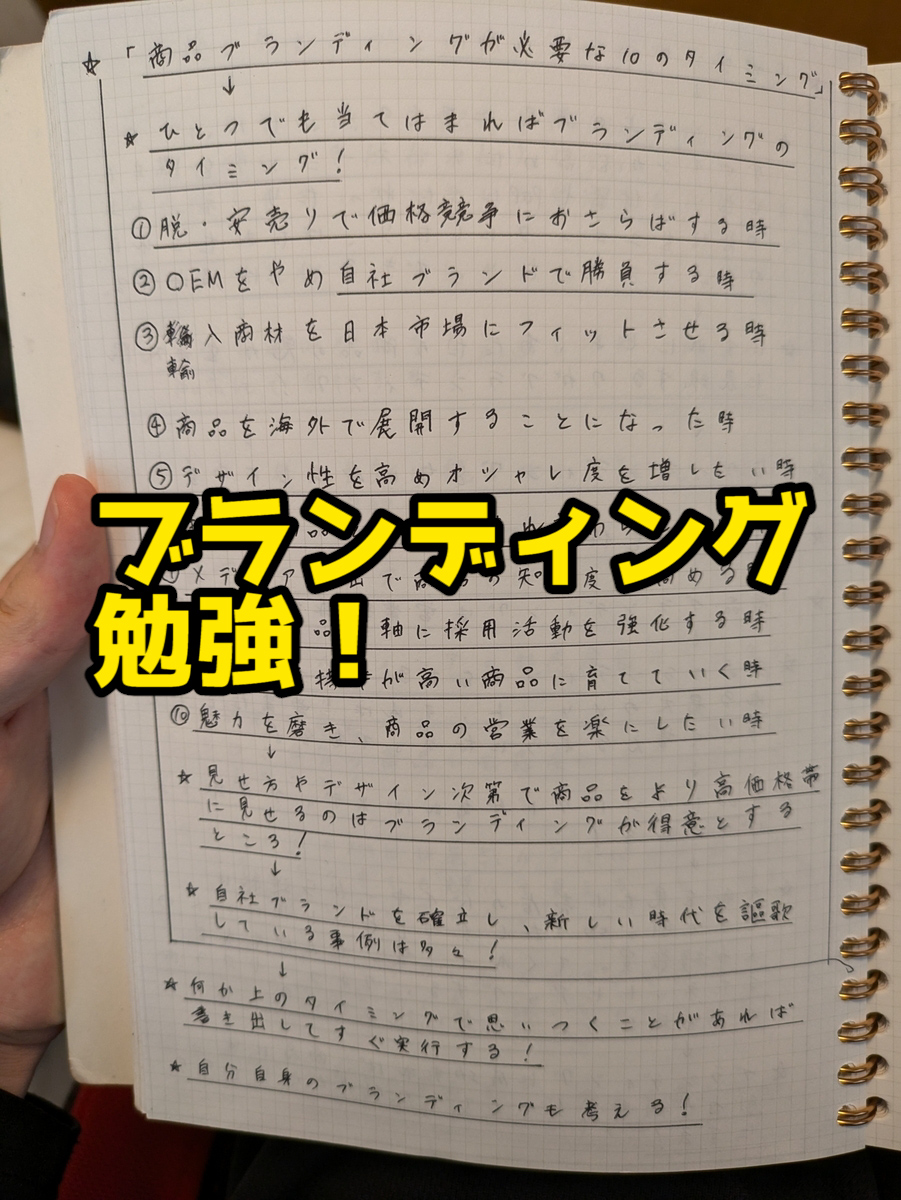 ☆「商品ブランディングが必要な10のタイミング」
↓
☆ ひとつでも当てはまればブランディングの
タイミング！
① 脱・安売りで価格競争におさらばする時
② OEMをやめ自社ブランドで勝負する時
③ 輸入商材を日本市場にフィットさせる時
輸
④ 商品を海外で展開することになった時
⑤ デザイン性を高めオシャレ度を増したい時
ブランディング
勉強！
メデ で 知 度 める
品 軸に採用活動を強化する時
が高い商品に育てていく時
⑩ 魅力を磨き、商品の営業を楽にしたい時
↓
☆ 見せ方やデザイン次第で商品をより高価格帯
に見せるのはブランディングが得意とする
ところ！
↓
☆ 自社ブランドを確立し、新しい時代を謳歌
している事例は多々！
↓
☆ 何か上のタイミングで思いつくことがあれば
書き出してすぐ実行する！
☆ 自分自身のブランディングも考える！